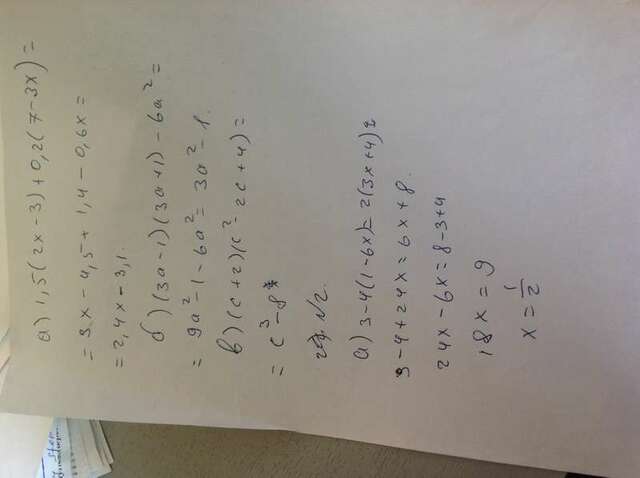 а) 1,5(2x-3)+0,2(7-3x)=
= 3x-4,5+1,4-0,6x=
= 2,4x-3,1.
б) (3a-1)(3a+1)-6a²=
= 9a²-1-6a²= 3a²-1.
в) (c+2)(c²-2c+4)=
= c³-8
№2.
а) 3-4(1-6x)=2(3x+4)
3-4+24x=6x+8.
24x-6x=8-3+4
18x=9
x=1/2